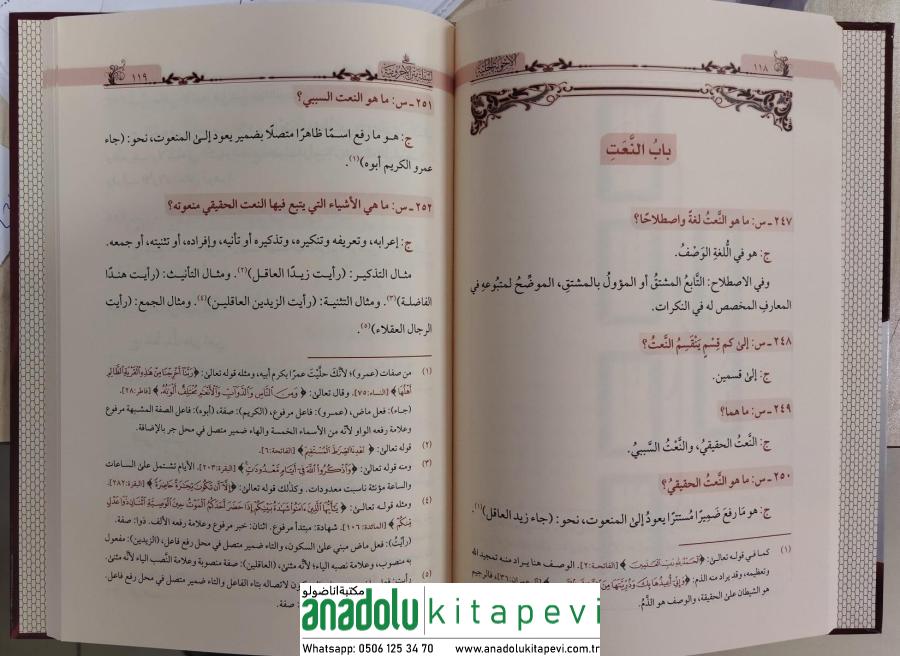 ١١٨
باب النَّعَتِ
٢٤٧ ـ س: ما هو النَّعتُ لغةً واصطلاحًا؟
ج: هو في اللُّغةِ الوَصْفُ.
وفي الاصطلاح: التَّابعُ المشتقُّ أو المؤولُ بالمشتقِ، الموضِّحُ لمتبُوعِهِ في
المعارفِ المخصص له في النكرات.
٢٤٨ ـ س: إلىٰ كم قِسْمٍ يَنْقَسِمُ النَّعتُ؟
ج: إلىٰ قسمين.
٢٤٩ ـ س: ما هما؟
ج: النَّعتُ الحقيقيُّ، والنَّعْتُ السَّببيُّ.
٢٥٠ ـ س: ما هو النَّعتُ الحقيقيُّ؟
ج: هو مَا رفعَ ضَمِيرًا مُستترًا يعودُ إلىٰ المنعوت، نحو: (جاء زيد العاقل)(١).
(١) كما في قوله تعالىٰ: [الفاتحة:٢]. الوصف هنا يراد منه تمجيد الله
وتعظيمه، وقد يراد منه الذم: فالرجيم
هو الشيطان علىٰ الحقيقة، والوصف هو الذَّمُ.
١١٩
٢٥١ ـ س: ما هو النعت السببي؟
ج: هـو ما رفع اسـمًا ظاهرًا متصلًا بضمير يعود إلىٰ المنعوت، نحو: (جاء
عمرو الكريم أبوه)(١).
٢٥٢ ـ س: ما هي الأشياء التي يتبع فيها النعت الحقيقي منعوته؟
ج: إعرابه، وتعريفه وتنكيره، وتذكيره أو تأنيه، وإفراده، أو تثنيته، أو جمعه.
مثـال التذكيـر: (رأيـت زيـدًا العاقـل)(٢). ومثـال التأنيـث: (رأيت هنـدًا
الفاضلـة)(٣). ومثال التثنيـة: (رأيت الزيدين العاقليـن)(٤). ومثال الجمع: (رأيت
الرجال العقلاء)(٥).
(١) من صفات (عمرو)؛ لأنكَ حلَّيْتَ عمرًا بكرم أبيه، ومثله قوله تعالىٰ: ﴿رَبَّنَا أَخْرِجْنَا مِنْ هَٰذِهِ الْقَرْيَةِ الظَّالِمِ
أَهْلُهَا﴾ [النساء:٧٥]. وقال تعالىٰ: ﴿وَمِنَ النَّاسِ وَالدَّوَآبِّ وَالْأَنْعَٰمِ مُخْتَلِفٌ أَلْوَٰنُهُۥ﴾ [فاطر:٢٨].
(جاء): فعل ماض، (عمـرو): فاعل مرفوع، (الكريم): صفة، (أبوه): فاعل الصفة المشبهة مرفوع
وعلامة رفعه الواو لأنّه من الأسماء الخمسة والهاء ضمير متصل في محل جر بالإضافة.
(٢) قوله تعالىٰ: ﴿اهْدِنَا الصِّرَٰطَ الْمُسْتَقِيمَ﴾ [الفاتحة:٦].
(٣) ومنه قوله تعالىٰ: ﴿وَاذْكُرُوا اللَّهَ فِي أَيَّامٍ مَّعْدُودَٰتٍ﴾ [البقرة:٢٠٣]. الأيام تشتمل علىٰ الساعات
والساعة مؤنثة ناسبت معدودات. وكذلك قوله تعالىٰ: ﴿إِلَّا أَن تَكُونَ تِجَٰرَةً حَاضِرَةً﴾ [البقرة:٢٨٢].
(٤) ومثله قوله تعالىٰ: ﴿يَٰأَيُّهَا الَّذِينَ ءَامَنُوا شَهَٰدَةُ بَيْنِكُمْ إِذَا حَضَرَ أَحَدَكُمُ الْمَوْتُ حِينَ الْوَصِيَّةِ اثْنَانِ ذَوَا عَدْلٍ
مِّنكُمْ﴾ [المائدة:١٠٦]. شهادة: مبتدأ مرفوع. اثنان: خبر مرفوع وعلامة رفعه الألف. ذوا: صفة.
(رأيتُ): فعل ماض مبني علىٰ السكون، والتاء ضمير متصل في محل رفع فاعل، (الزيدين): مفعول
به منصوب، وعلامة نصبه الياء؛ لأنّه مثنىٰ، (العاقلين): صفة منصوبة وعلامة النصب الياء لأنّه مثنىٰ.
(٥) رأيت: فعل لاتصاله بتاء الفاعل والتاء ضمير متصل في محل رفع فاعل.
صفة.
مكتبة اناضولو
anadolu kitapevi
Whatsapp: 0506 125 34 70 www.anadolukitapevi.com.tr